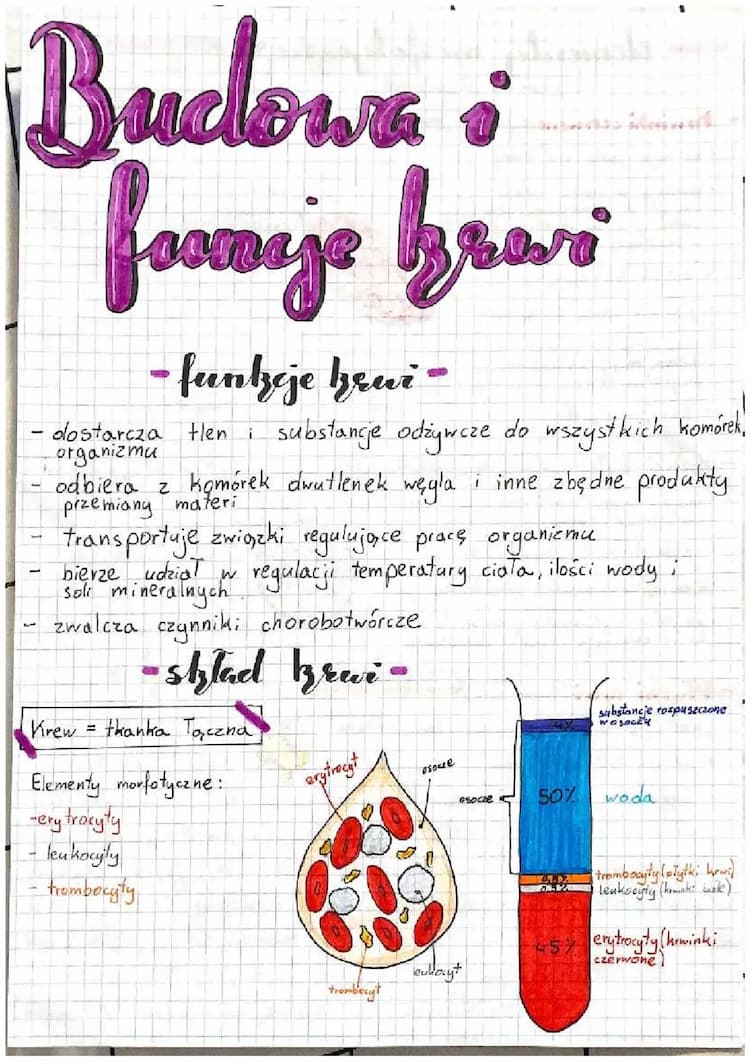 Budowa i
funcje krwi
- funkcje krwi -
- dostarcza tlen i substancje odżywcze do wszystkich komórek
organizmu
- odbiera z komórek dwutlenek węgla i inne zbędne produkty
przemiany materi
- transportuje związki regulujące pracę organizmu
- bierze udział w regulacji temperatury ciała, ilości wody i
soli mineralnych
- zwalcza czynniki chorobotwórcze
- skład krwi -
Krew = tkanka łączna
Elementy morfotyczne:
- erytrocyty
- leukocyty
- trombocyty
erytrocyt
osocze
leukocyt
trombocyt
substancje rozpuszczone
w osoczu
4%
osocze
50%
woda
0,5%
trombocyty (płytki krwi)
0,5%
leukocyty (krwinki białe)
45%
erytrocyty (krwinki
czerwone)